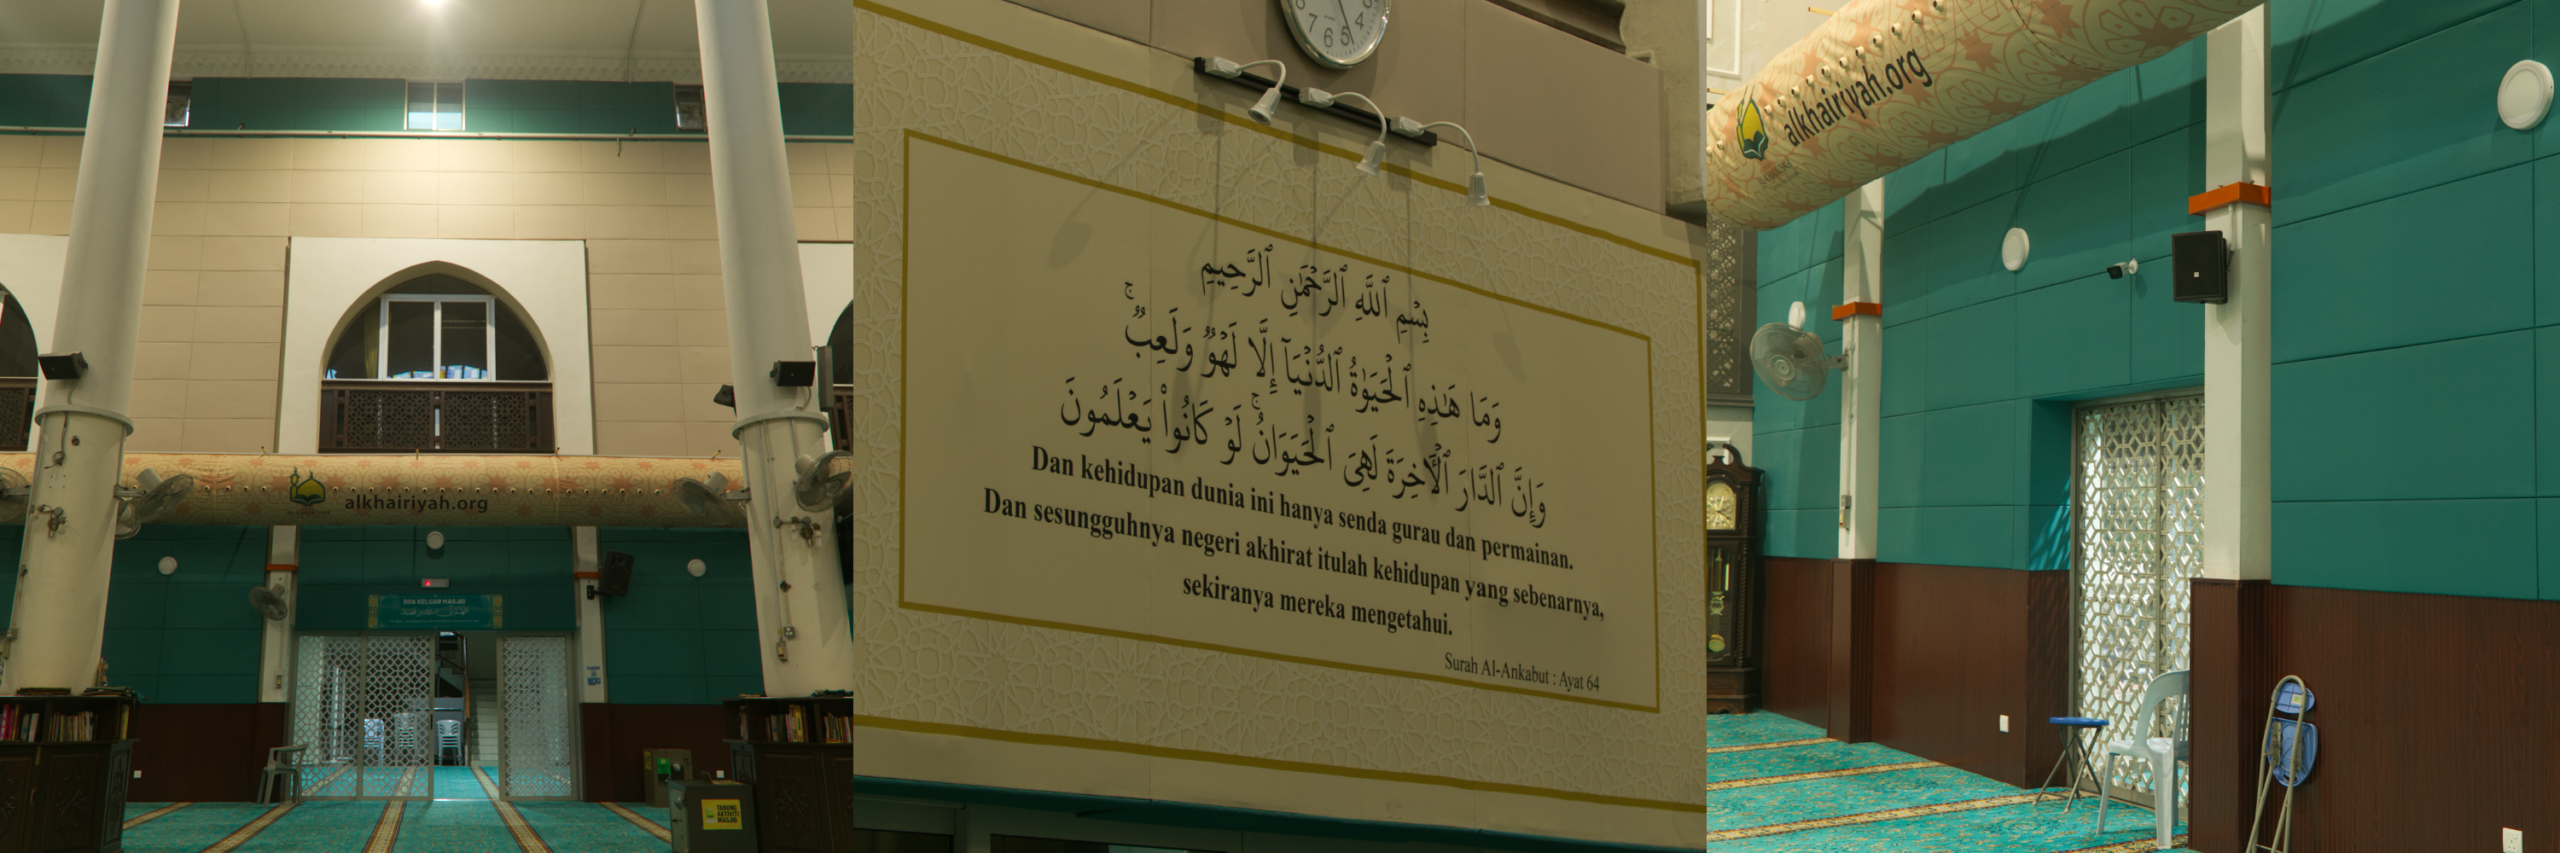 alkhairiyah.org
DOA KELUAR MASJID
TABUNG
AKTIVITI
MASJID
8 7 6 5 4
بِسْمِ ٱللَّهِ ٱلرَّحْمَٰنِ ٱلرَّحِيمِ
وَمَا هَٰذِهِ ٱلْحَيَوٰةُ ٱلدُّنْيَآ إِلَّا لَهْوٌ وَلَعِبٌ ۚ
وَإِنَّ ٱلدَّارَ ٱلْأَخِرَةَ لَهِىَ ٱلْحَيَوَانُ ۚ لَوْ كَانُوا۟ يَعْلَمُونَ
Dan kehidupan dunia ini hanya senda gurau dan permainan.
Dan sesungguhnya negeri akhirat itulah kehidupan yang sebenarnya,
sekiranya mereka mengetahui.
Surah Al-Ankabut : Ayat 64
alkhairiyah.org